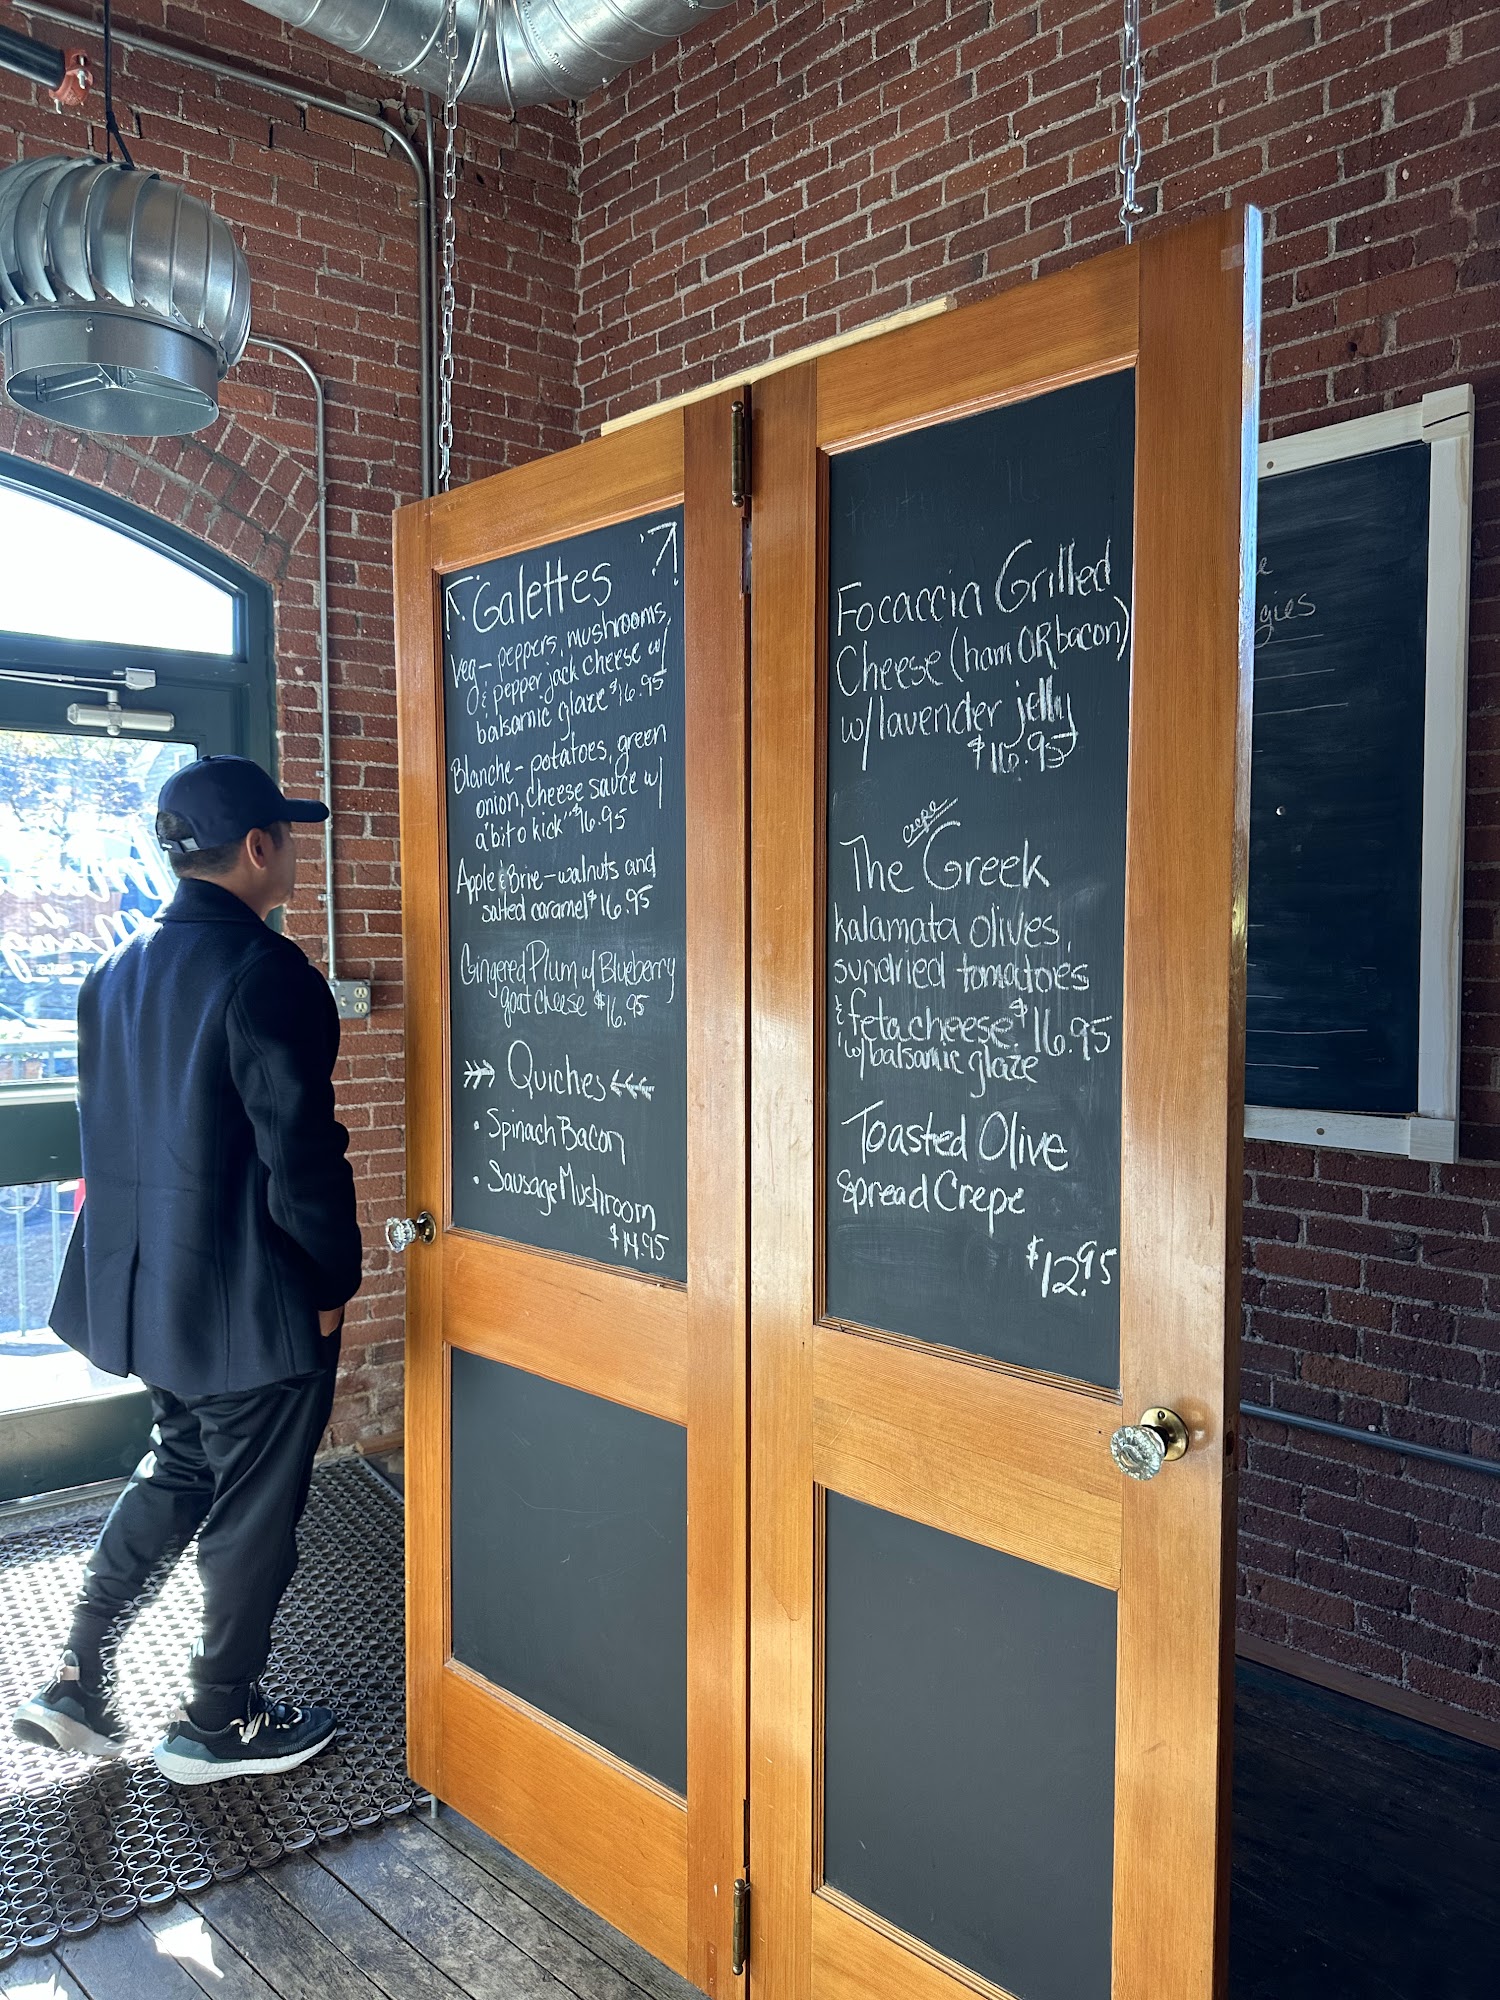 Galettes
Veg - peppers, mushrooms,
& pepper jack cheese w/
balsamic glaze $16.95
Blanche - potatoes, green
onion, cheese sauce w/
a "bit o kick" $16.95
Apple & Brie - walnuts and
salted caramel $16.95
Gingered Plum w/ Blueberry
goat cheese $16.95
Quiches
• Spinach Bacon
• Sausage Mushroom
$14.95
Focaccia Grilled
Cheese (ham OR bacon)
w/ lavender jelly
$16.95
crepe
The Greek
kalamata olives,
sundried tomatoes
& feta cheese $16.95
w/ balsamic glaze
Toasted Olive
Spread Crepe
$12.95
gies
de